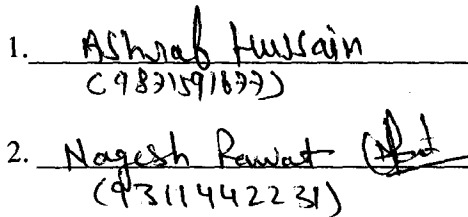 1. Ashraf Hussain
(9871591677)
2. Nagesh Rawat
(9311442231)